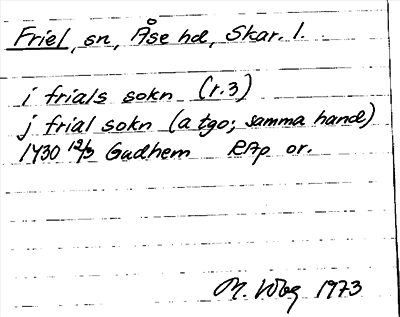 Friel, sn, Åse hd, Skar. l.
i frials sokn (r.3)
j frial sokn (a tgo; samma hand)
1430 12/3 Gudhem RAp or.
M. 1973